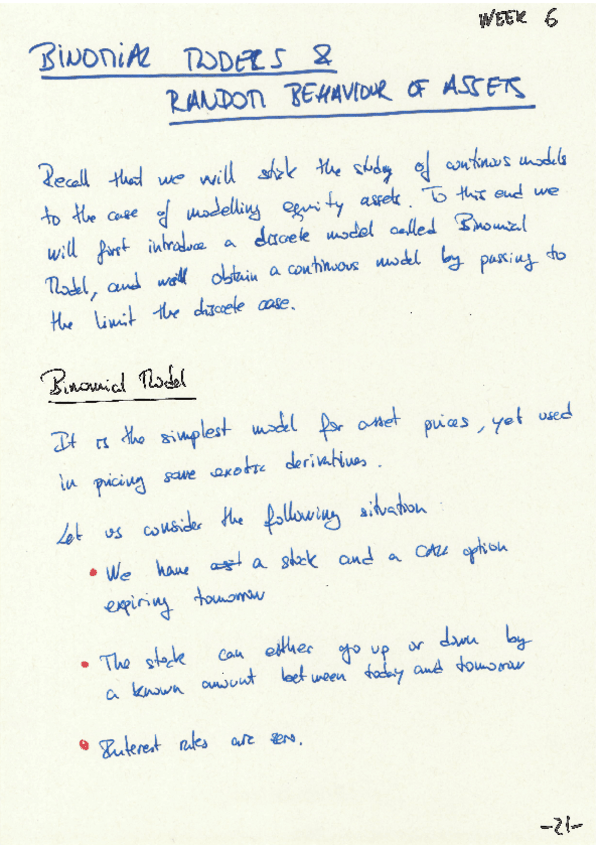 WEEK 6
BINOMIAL MODELS &
RANDOM BEHAVIOUR OF ASSETS
Recall that we will stick the study of continous models
to the case of modelling equity assets. To this end we
will first introduce a discrete model called Binomial
Model, and will obtain a continuous model by passing to
the limit the discrete case.
Binomial Model
It is the simplest model for asset prices, yet used
in pricing some exotic derivatives.
Let us consider the following situation
• We have a stock and a CALL option
expiring tomorrow
• The stock can either go up or down by
a known amount between today and tomorrow
• Interest rates are zero.
-21-